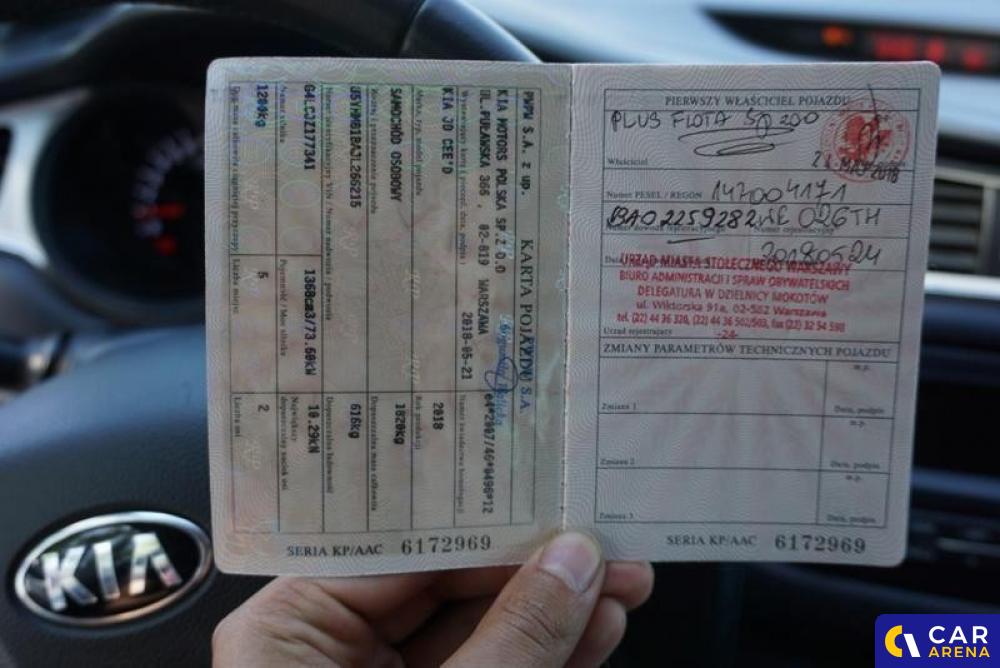 KARTA POJAZDU
PWPW S.A. z up.
KIA MOTORS POLSKA SP.Z O.O
UL.PUŁAWSKA 366 , 02-819 WARSZAWA
2018-05-21
e4*2007/46*0496*12
KIA JD CEE'D
2018
Rok produkcji
SAMOCHÓD OSOBOWY
1820kg
Dopuszczalna masa całkowita
U5YHM81BAJL266215
616kg
Dopuszczalna ładowność
G4LCJZ177341
1368cm3/73.60kW
10.29kN
Numer silnika
Największy
dopuszczalny nacisk osi
1200kg
5
2
Liczba miejsc
Liczba osi
SERIA KP/AAC 6172969
PIERWSZY WŁAŚCICIEL POJAZDU
PLUS FLOTA SP. ZOO
Właściciel
Numer PESEL / REGON
147004171
BAO2259282
WE 026TH
Numer rejestracyjny
20180524
URZĄD MIASTA STOŁECZNEGO WARSZAWY
BIURO ADMINISTRACJI I SPRAW OBYWATELSKICH
DELEGATURA W DZIELNICY MOKOTÓW
ul. Wiktorska 91a, 02-582 Warszawa
tel. (22) 44 36 320, (22) 44 36 502/503, fax (22) 32 54 590
-24-
Urząd rejestrujący
ZMIANY PARAMETRÓW TECHNICZNYCH POJAZDU
m.p.
Zmiana 1
Data, podpis
m.p.
Zmiana 2
Data, podpis
m.p.
Zmiana 3
Data, podpis
SERIA KP/AAC 6172969
KIA
CAR
ARENA